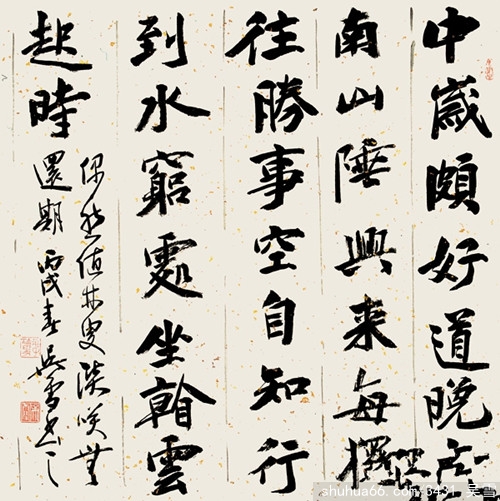 中歲頗好道晚家
南山陲興來每獨
往勝事空自知行
到水窮處坐看雲
起時
偶然值林叟談笑無
還期 丙戌春吳雪書之
shuhua66.com/3431 吴雪